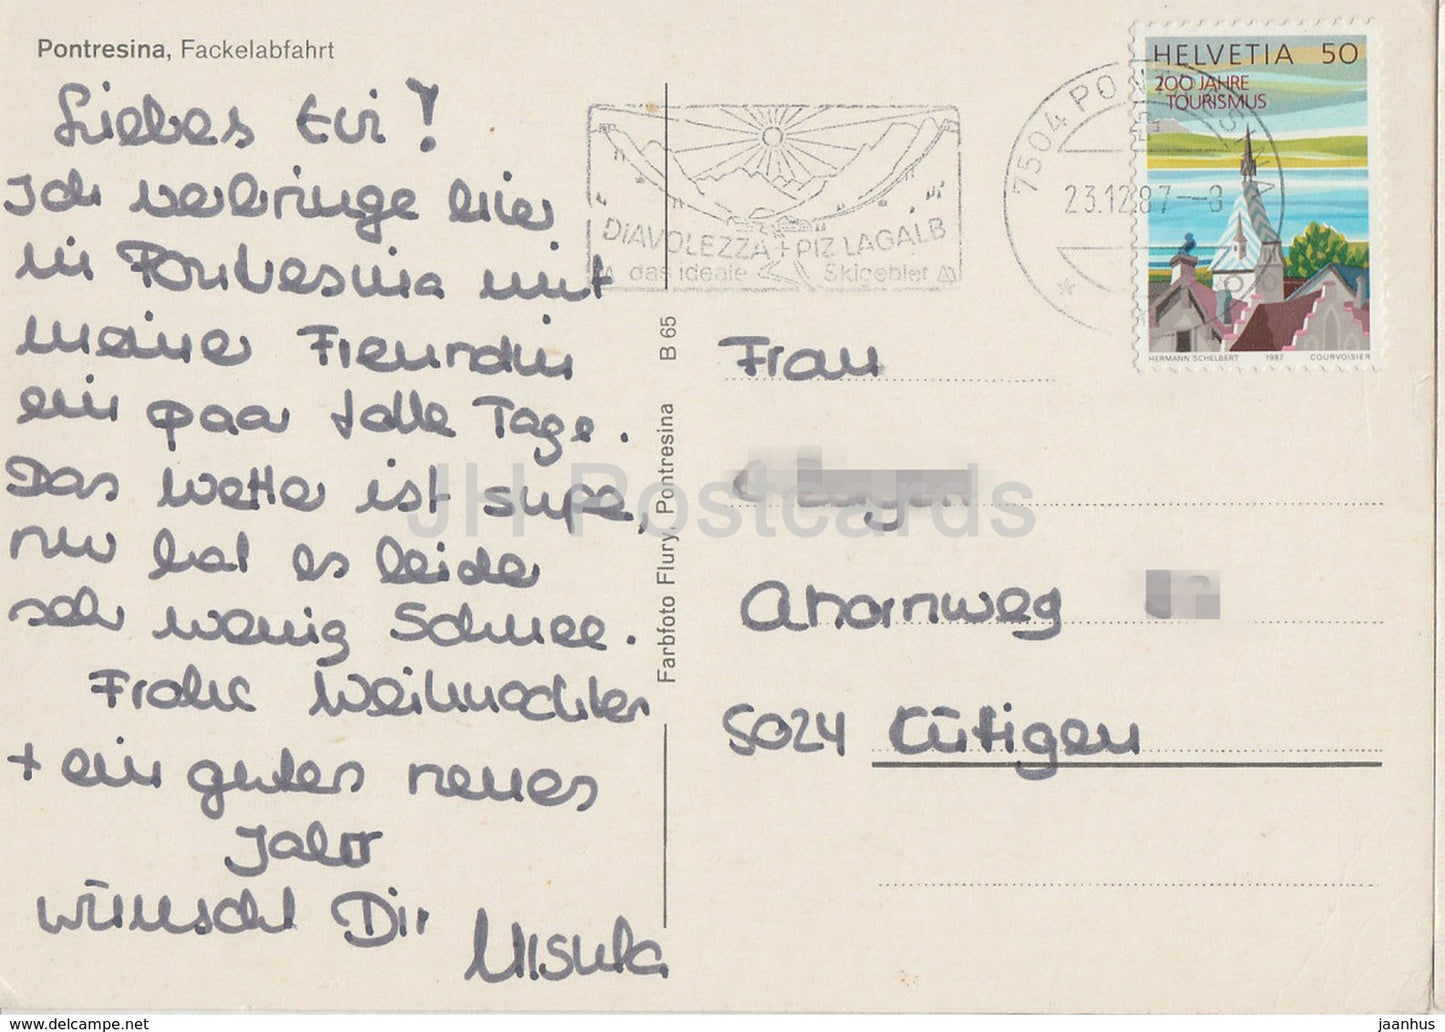 Pontresina, Fackelabfahrt
Liebes Evi!
Ich verbringe hier
in Pontresina mit
meiner Freundin
ein paar tolle Tage.
Das Wetter ist super,
nur hat es leider
sehr wenig Schnee.
Frohe Weihnachten
+ ein gutes neues
Jahr
wünscht Dir Ursula
Farbfoto Flury, Pontresina B 65
DIAVOLEZZA + PIZ LAGALB
das ideale Skigebiet
7504 PONTRESINA
23.12.87--8
HELVETIA 50
200 JAHRE
TOURISMUS
HERMANN SCHELBERT 1987 COURVOISIER
Frau
Ahornweg
5024 Küttigen
JH Postcards
https://www.delcampe.net
jaanhus